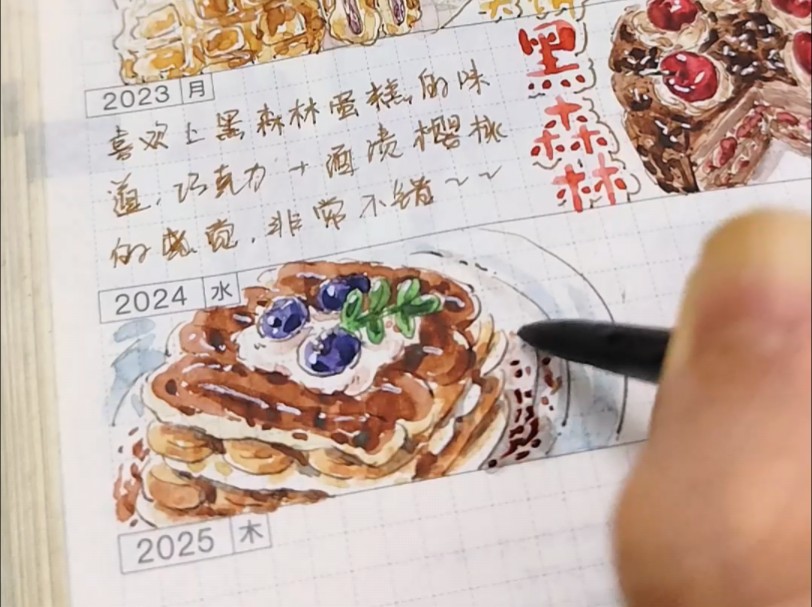 2023 月
喜欢上黑森林蛋糕的味
道,巧克力+酒渍樱桃
的感觉,非常不错~~
黑森林
2024 水
2025 木